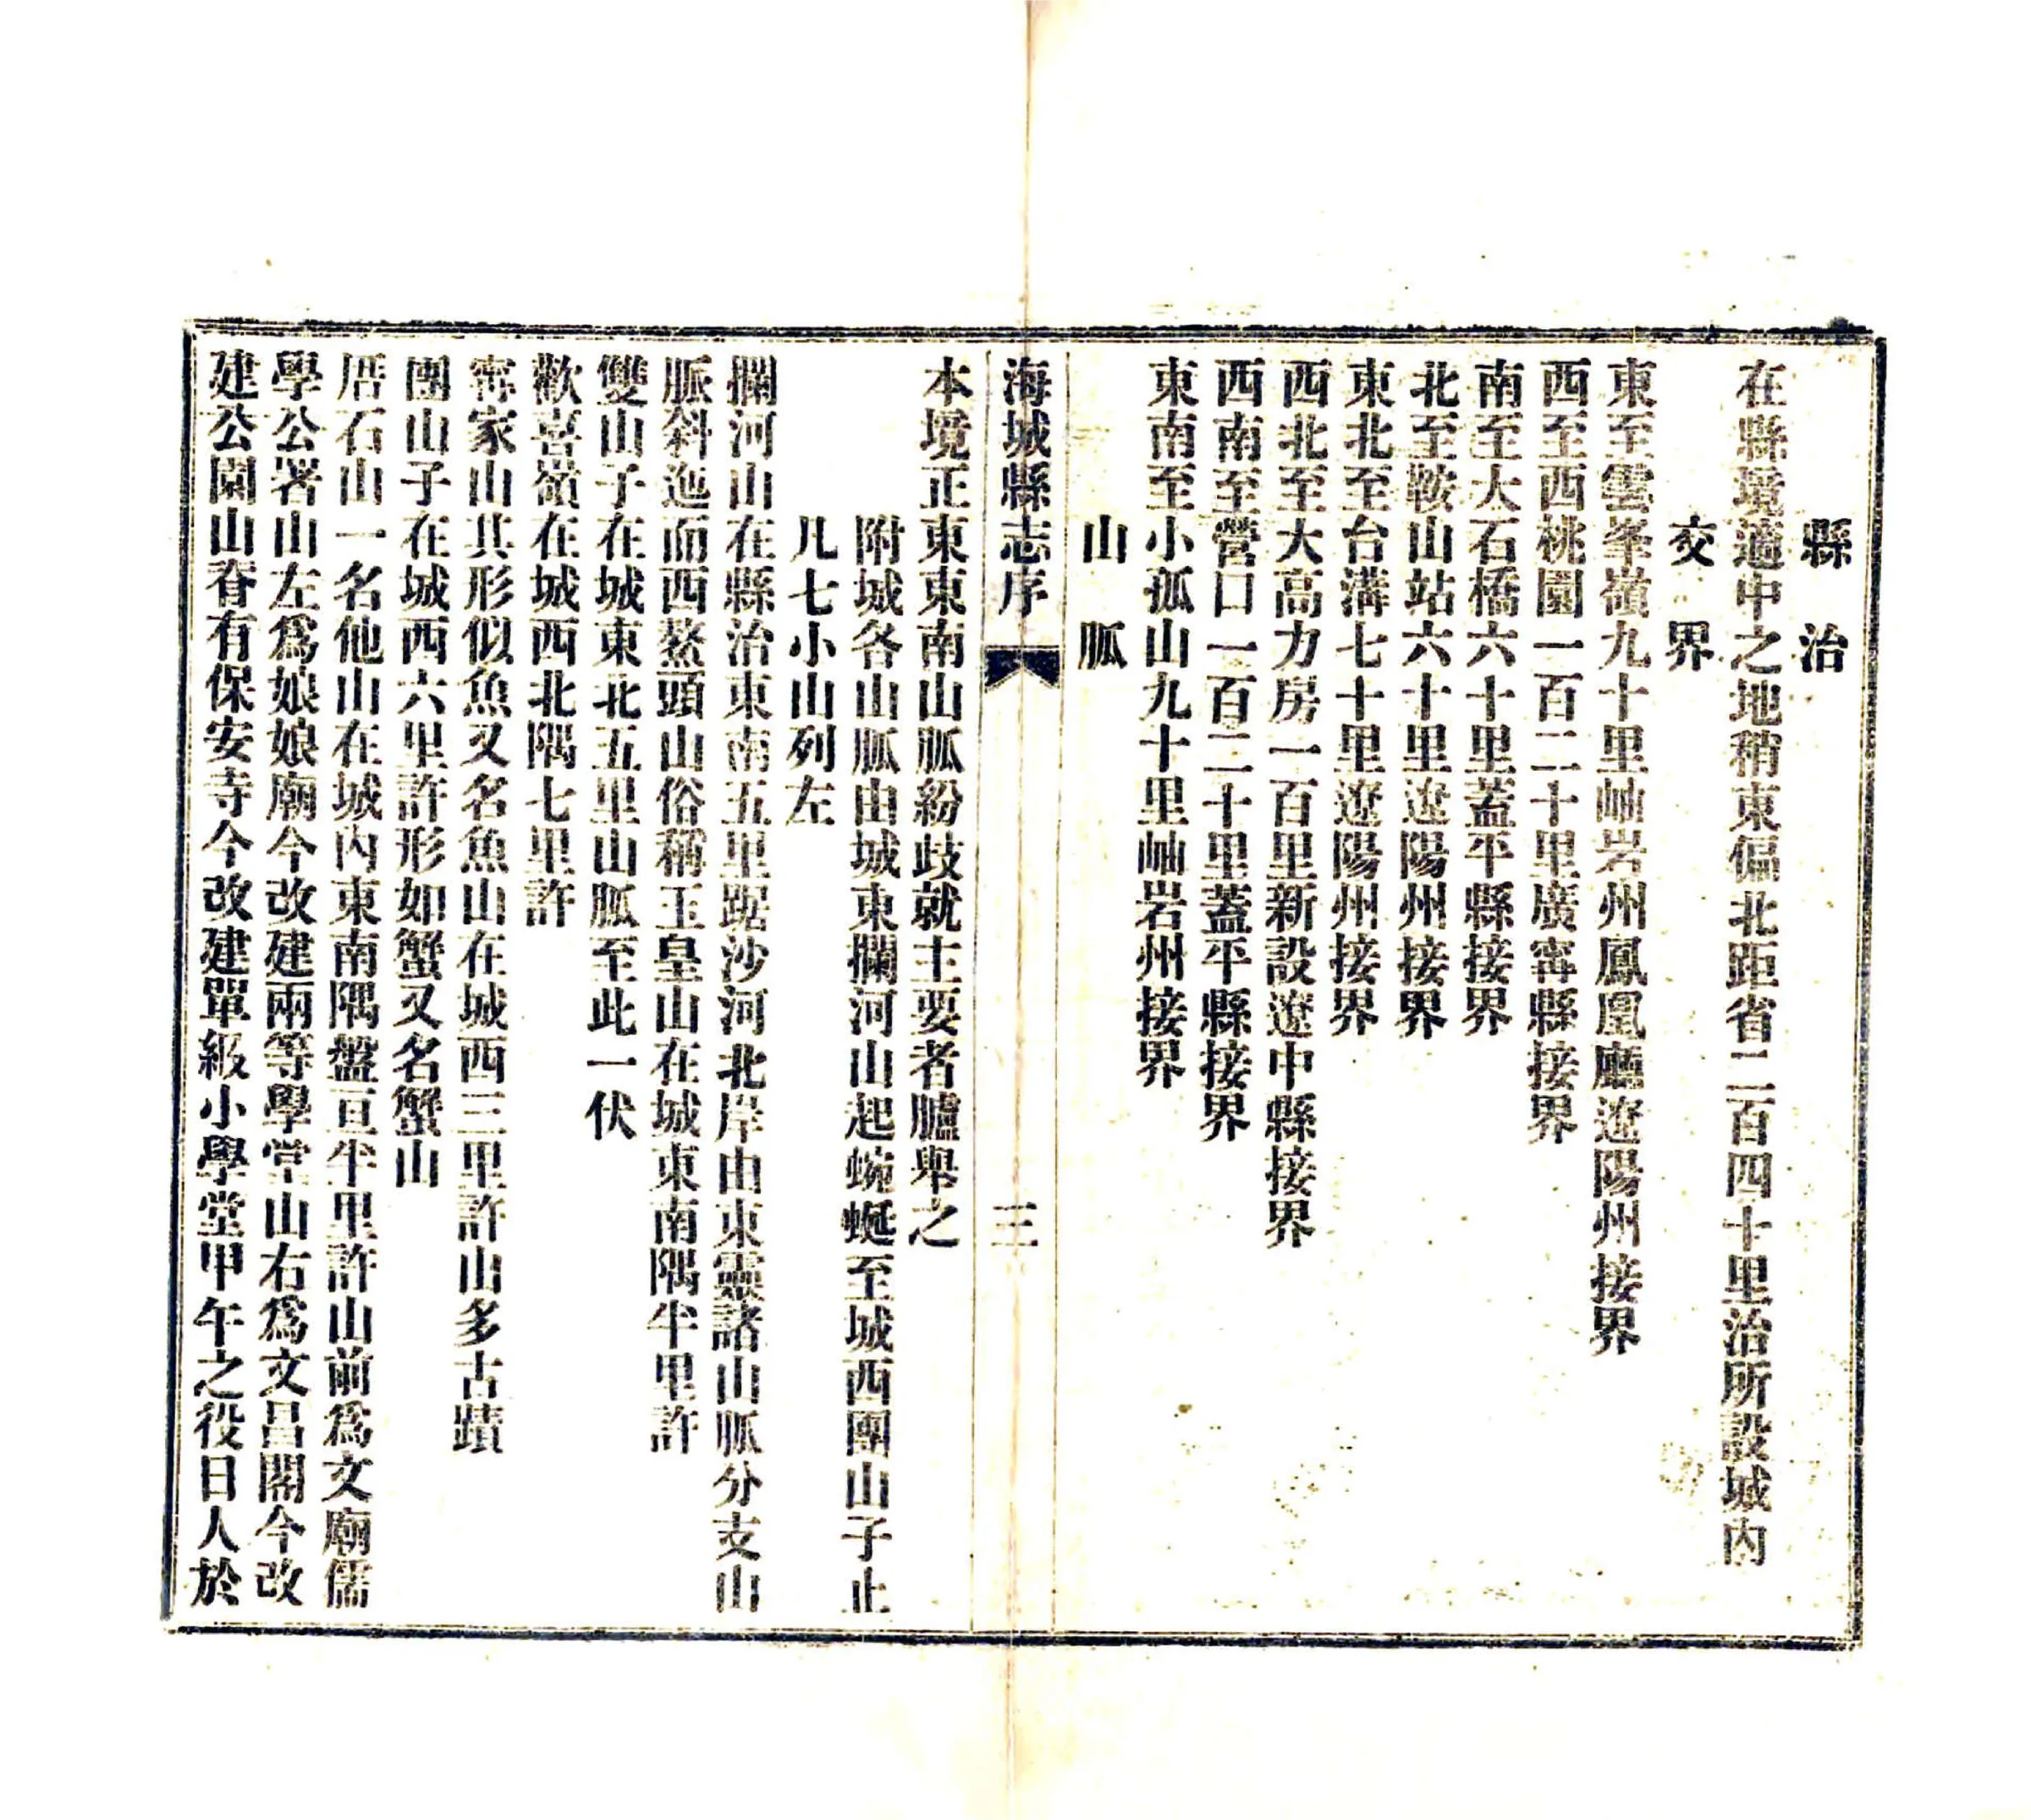 縣治
在縣境適中之地稍東偏北距省二百四十里治所設城內
交界
東至雲峯嶺九十里岫岩州鳳凰廳遼陽州接界
西至西桃園一百二十里廣甯縣接界
南至大石橋六十里蓋平縣接界
北至鞍山站六十里遼陽州接界
東北至台溝七十里遼陽州接界
西北至大高力房一百里新設遼中縣接界
西南至營口一百二十里蓋平縣接界
東南至小孤山九十里岫岩州接界
山脈
海城縣志序 三
本境正東東南山脈紛歧就主要者臚舉之
附城各山脈由城東攔河山起蜿蜒至城西團山子止
凡七小山列左
攔河山在縣治東南五里踞沙河北岸由東靈諸山脈分支山
脈斜迤而西鰲頭山俗稱玉皇山在城東南隅半里許
雙山子在城東北五里山脈至此一伏
歡喜嶺在城西北隅七里許
甯家山其形似魚又名魚山在城西三里許山多古蹟
團山子在城西六里許形如蟹又名蟹山
厝石山一名他山在城內東南隅盤亘半里許山前爲文廟儒
學公署山左爲娘娘廟今改建兩等學堂山右爲文昌閣今改
建公園山脊有保安寺今改建單級小學堂甲午之役日人於